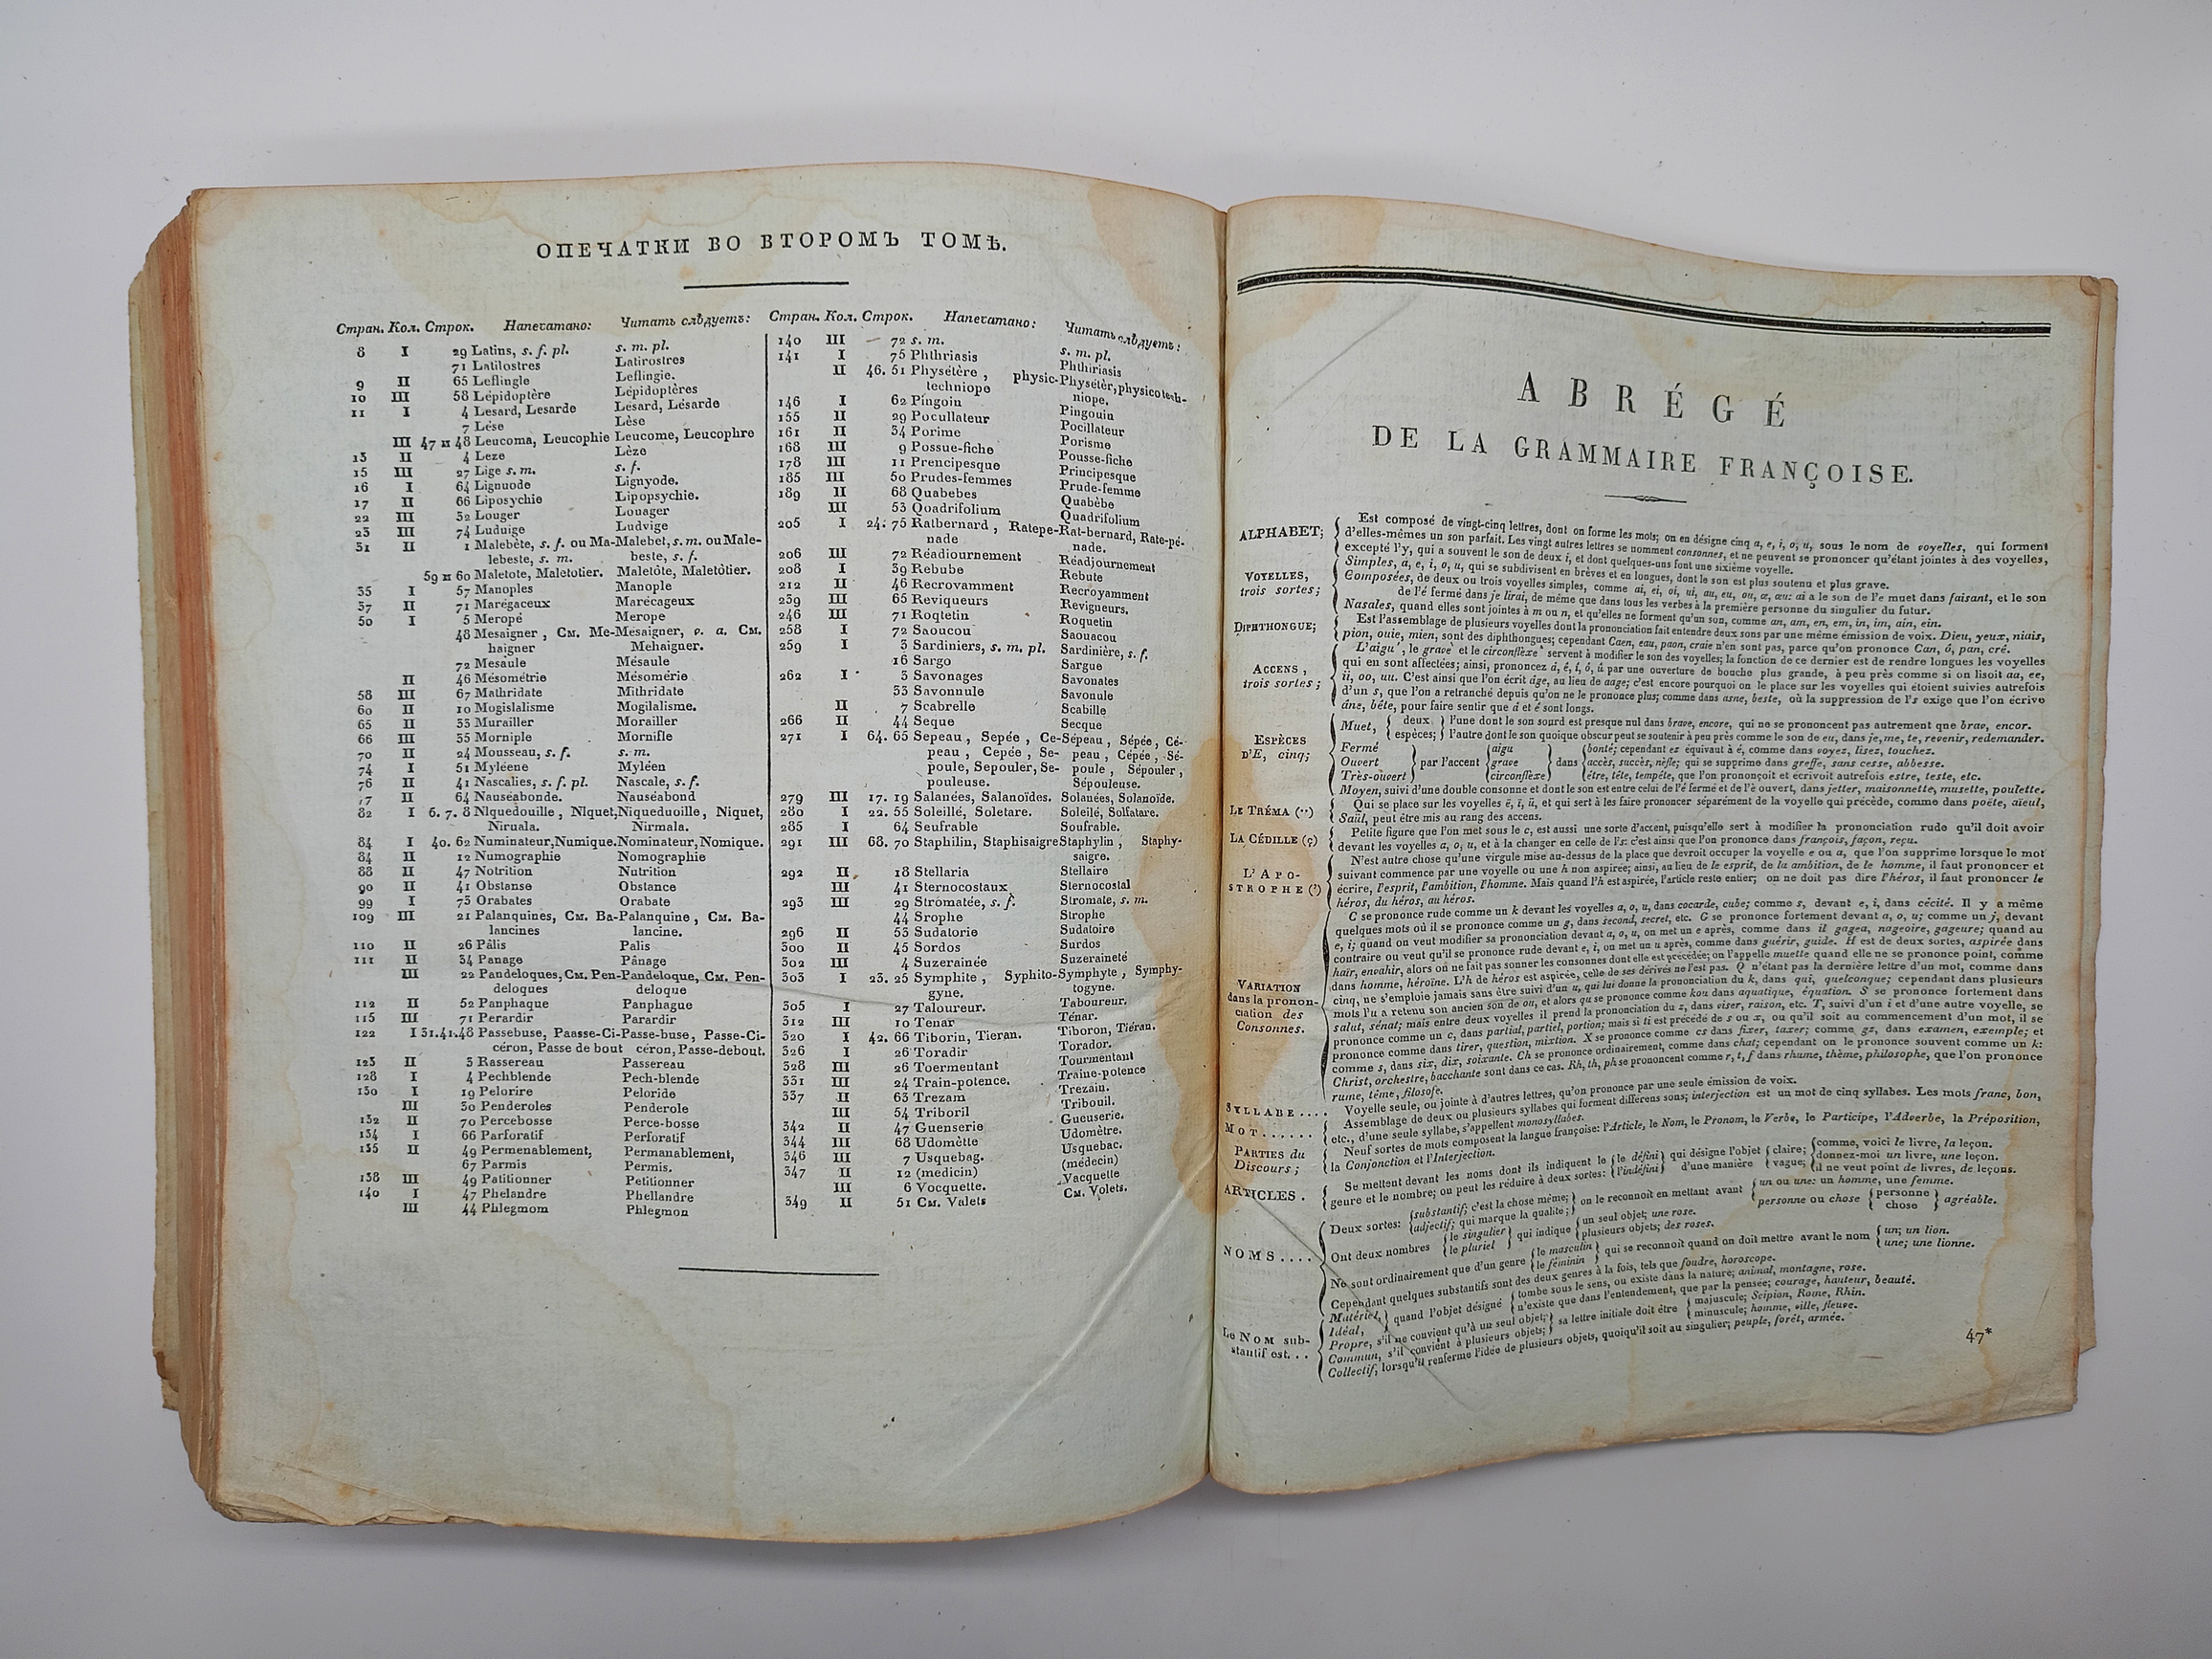 ОПЕЧАТКИ ВО ВТОРОМЪ ТОМѢ.
Стран. Кол. Строк. Напечатано: Читать слѣдуетъ:
8 I 29 Latins, s. f. pl. s. m. pl.
71 Latilostres Latirostres
9 II 65 Leflingle Leflingie.
10 III 58 Lépidoptère Lépidoptères
11 I 4 Lesard, Lesarde Lésard, Lésarde
7 Lése Lèse
III 47 и 48 Leucoma, Leucophie Leucome, Leucophre
13 II 4 Leze Lèze
15 III 27 Lige s. m. s. f.
16 I 64 Lignuode Lignyode.
17 II 66 Liposychie Lipopsychie.
22 III 32 Louger Louager
23 III 74 Luduige Ludvige
31 II 1 Malebète, s. f. ou Ma- Malebet, s. m. ou Male-
lebeste, s. m. beste, s. f.
59 и 60 Maletote, Maletotier. Maletôte, Maletôtier.
35 I 57 Manoples Manople
37 II 71 Marégaceux Marécageux
50 I 5 Meropé Merope
48 Mesaigner, См. Me- Mesaigner, v. a. См.
haigner Mehaigner.
72 Mesaule Mésaule
II 46 Mésométrie Mésomérie
58 III 67 Mathridate Mithridate
60 II 10 Mogislalisme Mogilalisme.
65 II 33 Murailler Morailler
66 III 35 Morniple Mornifle
70 II 24 Mousseau, s. f. s. m.
74 I 51 Myléene Myléen
76 II 41 Nascalies, s. f. pl. Nascale, s. f.
77 II 64 Nauséabonde. Nauséabond
82 I 6. 7. 8 Nlquedouille, Nlquet, Niqueduoille, Niquet,
Niruala. Nirmala.
84 I 40. 62 Numinateur, Numique. Nominateur, Nomique.
84 II 12 Numographie Nomographie
88 II 47 Notrition Nutrition
90 II 41 Obstanse Obstance
99 I 73 Orabates Orabate
109 III 21 Palanquines, См. Ba- Palanquine, См. Ba-
lancines lancine.
110 II 26 Pâlis Palis
111 II 34 Panage Pânage
III 22 Pandeloques, См. Pen- Pandeloque, См. Pen-
deloques deloque
112 II 52 Panphaque Panphague
115 III 71 Perardir Parardir
122 I 31. 41. 48 Passebuse, Paasse-Ci- Passe-buse, Passe-Ci-
céron, Passe de bout céron, Passe-debout.
123 II 3 Rassereau Passereau
128 I 4 Pechblende Pech-blende
130 I 19 Pelorire Peloride
III 30 Penderoles Penderole
132 II 70 Percebosse Perce-bosse
134 I 66 Parforatif Perforatif
135 II 49 Permenablement, Permanablement,
67 Parmis Permis.
138 III 49 Patitionner Petitionner
140 I 47 Phelandre Phellandre
III 44 Phlegmom Phlegmon
Стран. Кол. Строк. Напечатано: Читать слѣдуетъ:
140 III 72 s. m. s. m. pl.
141 I 75 Phthriasis Phthiriasis
II 46. 51 Physétère, physic- Physétèr, physicotech-
techniope niope.
146 I 62 Pingoin Pingouin
155 II 29 Pocullateur Pocillateur
161 II 34 Porime Porisme
168 III 9 Possue-fiche Pousse-fiche
178 III 11 Prencipesque Principesque
185 III 50 Prudes-femmes Prude-femme
189 II 68 Quabebes Quabèbe
III 53 Quadrifolium Quadrifolium
205 I 24. 75 Ratbernard, Ratepe- Rat-bernard, Rate-pé-
nade nade.
206 III 72 Réadiournement Réadjournement
208 I 39 Rebube Rebute
212 II 46 Recrovamment Recroyamment
239 III 65 Reviqueurs Revigueurs.
246 III 71 Roqtetin Roquetin
258 I 72 Saoucou Saouacou
259 I 3 Sardiniers, s. m. pl. Sardinière, s. f.
16 Sargo Sargue
262 I 3 Savonages Savonates
33 Savonnule Savonule
II 7 Scabrelle Scabille
266 II 44 Seque Secque
271 I 64. 65 Sepeau, Sepée, Ce- Sépeau, Sépée, Cé-
peau, Cepée, Se- peau, Cépée, Sé-
poule, Sepouler, Se- poule, Sépouler,
pouleuse. Sépouleuse.
279 III 17. 19 Salanées, Salanoïdes. Solanées, Solanoïde.
280 I 22. 55 Soleillé, Soletare. Soleilé, Solfatare.
285 I 64 Seufrable Soufrable.
291 III 68. 70 Staphilin, Staphisaigre Staphylin, Staphy-
saigre.
292 II 18 Stellaria Stellaire
III 41 Sternocostaux Sternocostal
293 III 29 Stromatée, s. f. Stromate, s. m.
44 Srophe Strophe
296 II 53 Sudatorie Sudatoire
300 II 45 Sordos Surdos
302 III 4 Suzerainée Suzeraineté
303 I 23. 25 Symphite, Syphito- Symphyte, Symphy-
gyne. togyne.
305 I 27 Taloureur. Taboureur.
312 III 10 Tenar Ténar.
320 I 42. 66 Tiborin, Tieran. Tiboron, Tiéran.
326 I 26 Toradir Torador.
328 III 26 Toermentant Tourmentant
331 III 24 Train-potence. Traine-potence
337 II 63 Trezam Trezain.
III 54 Triboril Tribouil.
342 II 47 Guenserie Gueuserie.
344 III 68 Udomètte Udomètre.
346 III 7 Usquebag. Usquebac.
347 II 12 (medicin) (médecin)
III 6 Vocquette. Vacquette
349 II 51 См. Valets См. Volets.
ABRÉGÉ
DE LA GRAMMAIRE FRANÇOISE.
ALPHABET; Est composé de vingt-cinq lettres, dont on forme les mots; on en désigne cinq a, e, i, o, u, sous le nom de voyelles, qui forment
d'elles-mêmes un son parfait. Les vingt autres lettres se nomment consonnes, et ne peuvent se prononcer qu'étant jointes à des voyelles,
excepté l'y, qui a souvent le son de deux i, et dont quelques-uns font une sixième voyelle.
VOYELLES, trois sortes; Simples, a, e, i, o, u, qui se subdivisent en brèves et en longues, dont le son est plus soutenu et plus grave.
Composées, de deux ou trois voyelles simples, comme ai, ei, oi, ui, au, eu, ou, æ, œu: ai a le son de l'e muet dans faisant, et le son
de l'é fermé dans je lirai, de même que dans tous les verbes à la première personne du singulier du futur.
Nasales, quand elles sont jointes à m ou n, et qu'elles ne forment qu'un son, comme an, am, en, em, in, im, ain, ein.
DIPHTHONGUE; Est l'assemblage de plusieurs voyelles dont la prononciation fait entendre deux sons par une même émission de voix. Dieu, yeux, niais,
pion, ouie, mien, sont des diphthongues; cependant Caen, eau, paon, craie n'en sont pas, parce qu'on prononce Can, ó, pan, cré.
ACCENS, trois sortes; L'aigu ´, le grave ` et le circonflexe ^ servent à modifier le son des voyelles; la fonction de ce dernier est de rendre longues les voyelles
qui en sont affectées; ainsi, prononcez â, ê, î, ô, û par une ouverture de bouche plus grande, à peu près comme si on lisoit aa, ee,
ii, oo, uu. C'est ainsi que l'on écrit âge, au lieu de aage; c'est encore pourquoi on le place sur les voyelles qui étoient suivies autrefois
d'un s, que l'on a retranché depuis qu'on ne le prononce plus; comme dans asne, beste, où la suppression de l's exige que l'on écrive
âne, bête, pour faire sentir que â et ê sont longs.
ESPÈCES D'E, cinq; Muet, deux espèces; l'une dont le son sourd est presque nul dans brave, encore, qui ne se prononcent pas autrement que brav, encor.
l'autre dont le son quoique obscur peut se soutenir à peu près comme le son de eu, dans je, me, te, revenir, redemander.
Fermé aigu bonté; cependant ez équivaut à é, comme dans voyez, lisez, touchez.
Ouvert par l'accent grave dans accès, succès, nèfle; qui se supprime dans greffe, sans cesse, abbesse.
Très-ouvert circonflèxe être, tête, tempête, que l'on prononçoit et écrivoit autrefois estre, teste, etc.
Moyen, suivi d'une double consonne et dont le son est entre celui de l'é fermé et de l'è ouvert, dans jetter, maisonnette, musette, poulette.
LE TRÉMA (¨) Qui se place sur les voyelles ë, ï, ü, et qui sert à les faire prononcer séparément de la voyelle qui précède, comme dans poëte, aïeul,
Saül, peut être mis au rang des accens.
LA CÉDILLE (ç) Petite figure que l'on met sous le c, est aussi une sorte d'accent, puisqu'elle sert à modifier la prononciation rude qu'il doit avoir
devant les voyelles a, o, u, et à la changer en celle de l's: c'est ainsi que l'on prononce dans françois, façon, reçu.
L'APO-STROPHE (') N'est autre chose qu'une virgule mise au-dessus de la place que devroit occuper la voyelle e ou a, que l'on supprime lorsque le mot
suivant commence par une voyelle ou une h non aspirée; ainsi, au lieu de le esprit, de la ambition, de le homme, il faut prononcer et
écrire, l'esprit, l'ambition, l'homme. Mais quand l'h est aspirée, l'article reste entier; on ne doit pas dire l'héros, il faut prononcer le
héros, du héros, au héros.
VARIATION dans la pronon-ciation des Consonnes. C se prononce rude comme un k devant les voyelles a, o, u, dans cocarde, cube; comme s, devant e, i, dans cécité. Il y a même
quelques mots où il se prononce comme un g, dans second, secret, etc. G se prononce fortement devant a, o, u; comme un j, devant
e, i; quand on veut modifier sa prononciation devant a, o, u, on met un e après, comme dans il gagea, nageoire, gageure; quand au
contraire on veut qu'il se prononce rude devant e, i, on met un u après, comme dans guérir, guide. H est de deux sortes, aspirée dans
haïr, envahir, alors on ne fait pas sonner les consonnes dont elle est précédée; on l'appelle muette quand elle ne se prononce point, comme
dans homme, héroïne. L'h de héros est aspirée, celle de ses dérivés ne l'est pas. Q n'étant pas la dernière lettre d'un mot, comme dans
cinq, ne s'emploie jamais sans être suivi d'un u, qui lui donne la prononciation du k, dans qui, quelconque; cependant dans plusieurs
mots l'u a retenu son ancien son de ou, et alors qu se prononce comme kou dans aquatique, équation. S se prononce fortement dans
salut, sénat; mais entre deux voyelles il prend la prononciation du z, dans viser, raison, etc. T, suivi d'un i et d'une autre voyelle, se
prononce comme un c, dans partial, partiel, portion; mais si ti est précédé de s ou x, ou qu'il soit au commencement d'un mot, il se
prononce comme dans tirer, question, mixtion. X se prononce comme cs dans fixer, taxer; comme gz, dans examen, exemple; et
comme s, dans six, dix, soixante. Ch se prononce ordinairement, comme dans chat; cependant on le prononce souvent comme un k:
Christ, orchestre, bacchante sont dans ce cas. Rh, th, ph se prononcent comme r, t, f dans rhume, thème, philosophe, que l'on prononce
rume, téme, filosofe.
SYLLABE.... Voyelle seule, ou jointe à d'autres lettres, qu'on prononce par une seule émission de voix.
MOT...... Assemblage de deux ou plusieurs syllabes qui forment différens sons; interjection est un mot de cinq syllabes. Les mots franc, bon,
etc., d'une seule syllabe, s'appellent monosyllabes.
PARTIES du Discours; Neuf sortes de mots composent la langue françoise: l'Article, le Nom, le Pronom, le Verbe, le Participe, l'Adverbe, la Préposition,
la Conjonction et l'Interjection.
ARTICLES. Se mettent devant les noms dont ils indiquent le genre et le nombre; on peut les réduire à deux sortes: le défini l'indéfini qui désigne l'objet d'une manière claire; vague; comme, voici le livre, la leçon.
donnez-moi un livre, une leçon.
il ne veut point de livres, de leçons.
NOMS.... Deux sortes: substantif; c'est la chose même; adjectif; qui marque la qualité; on le reconnoît en mettant avant un ou une: un homme, une femme.
personne ou chose personne chose agréable.
Ont deux nombres le singulier le pluriel qui indique un seul objet; une rose.
plusieurs objets; des roses.
Ne sont ordinairement que d'un genre le masculin le féminin qui se reconnoît quand on doit mettre avant le nom un; un lion.
une; une lionne.
Cependant quelques substantifs sont des deux genres à la fois, tels que foudre, horoscope.
Le NOM sub-stantif est... Matériel, Idéal, quand l'objet désigné tombe sous le sens, ou existe dans la nature; animal, montagne, rose.
n'existe que dans l'entendement, que par la pensée; courage, hauteur, beauté.
Propre, s'il ne convient qu'à un seul objet; Commun, s'il convient à plusieurs objets; sa lettre initiale doit être majuscule; Scipion, Rome, Rhin.
minuscule; homme, ville, fleuve.
Collectif, lorsqu'il renferme l'idée de plusieurs objets, quoiqu'il soit au singulier; peuple, forêt, armée.
47*